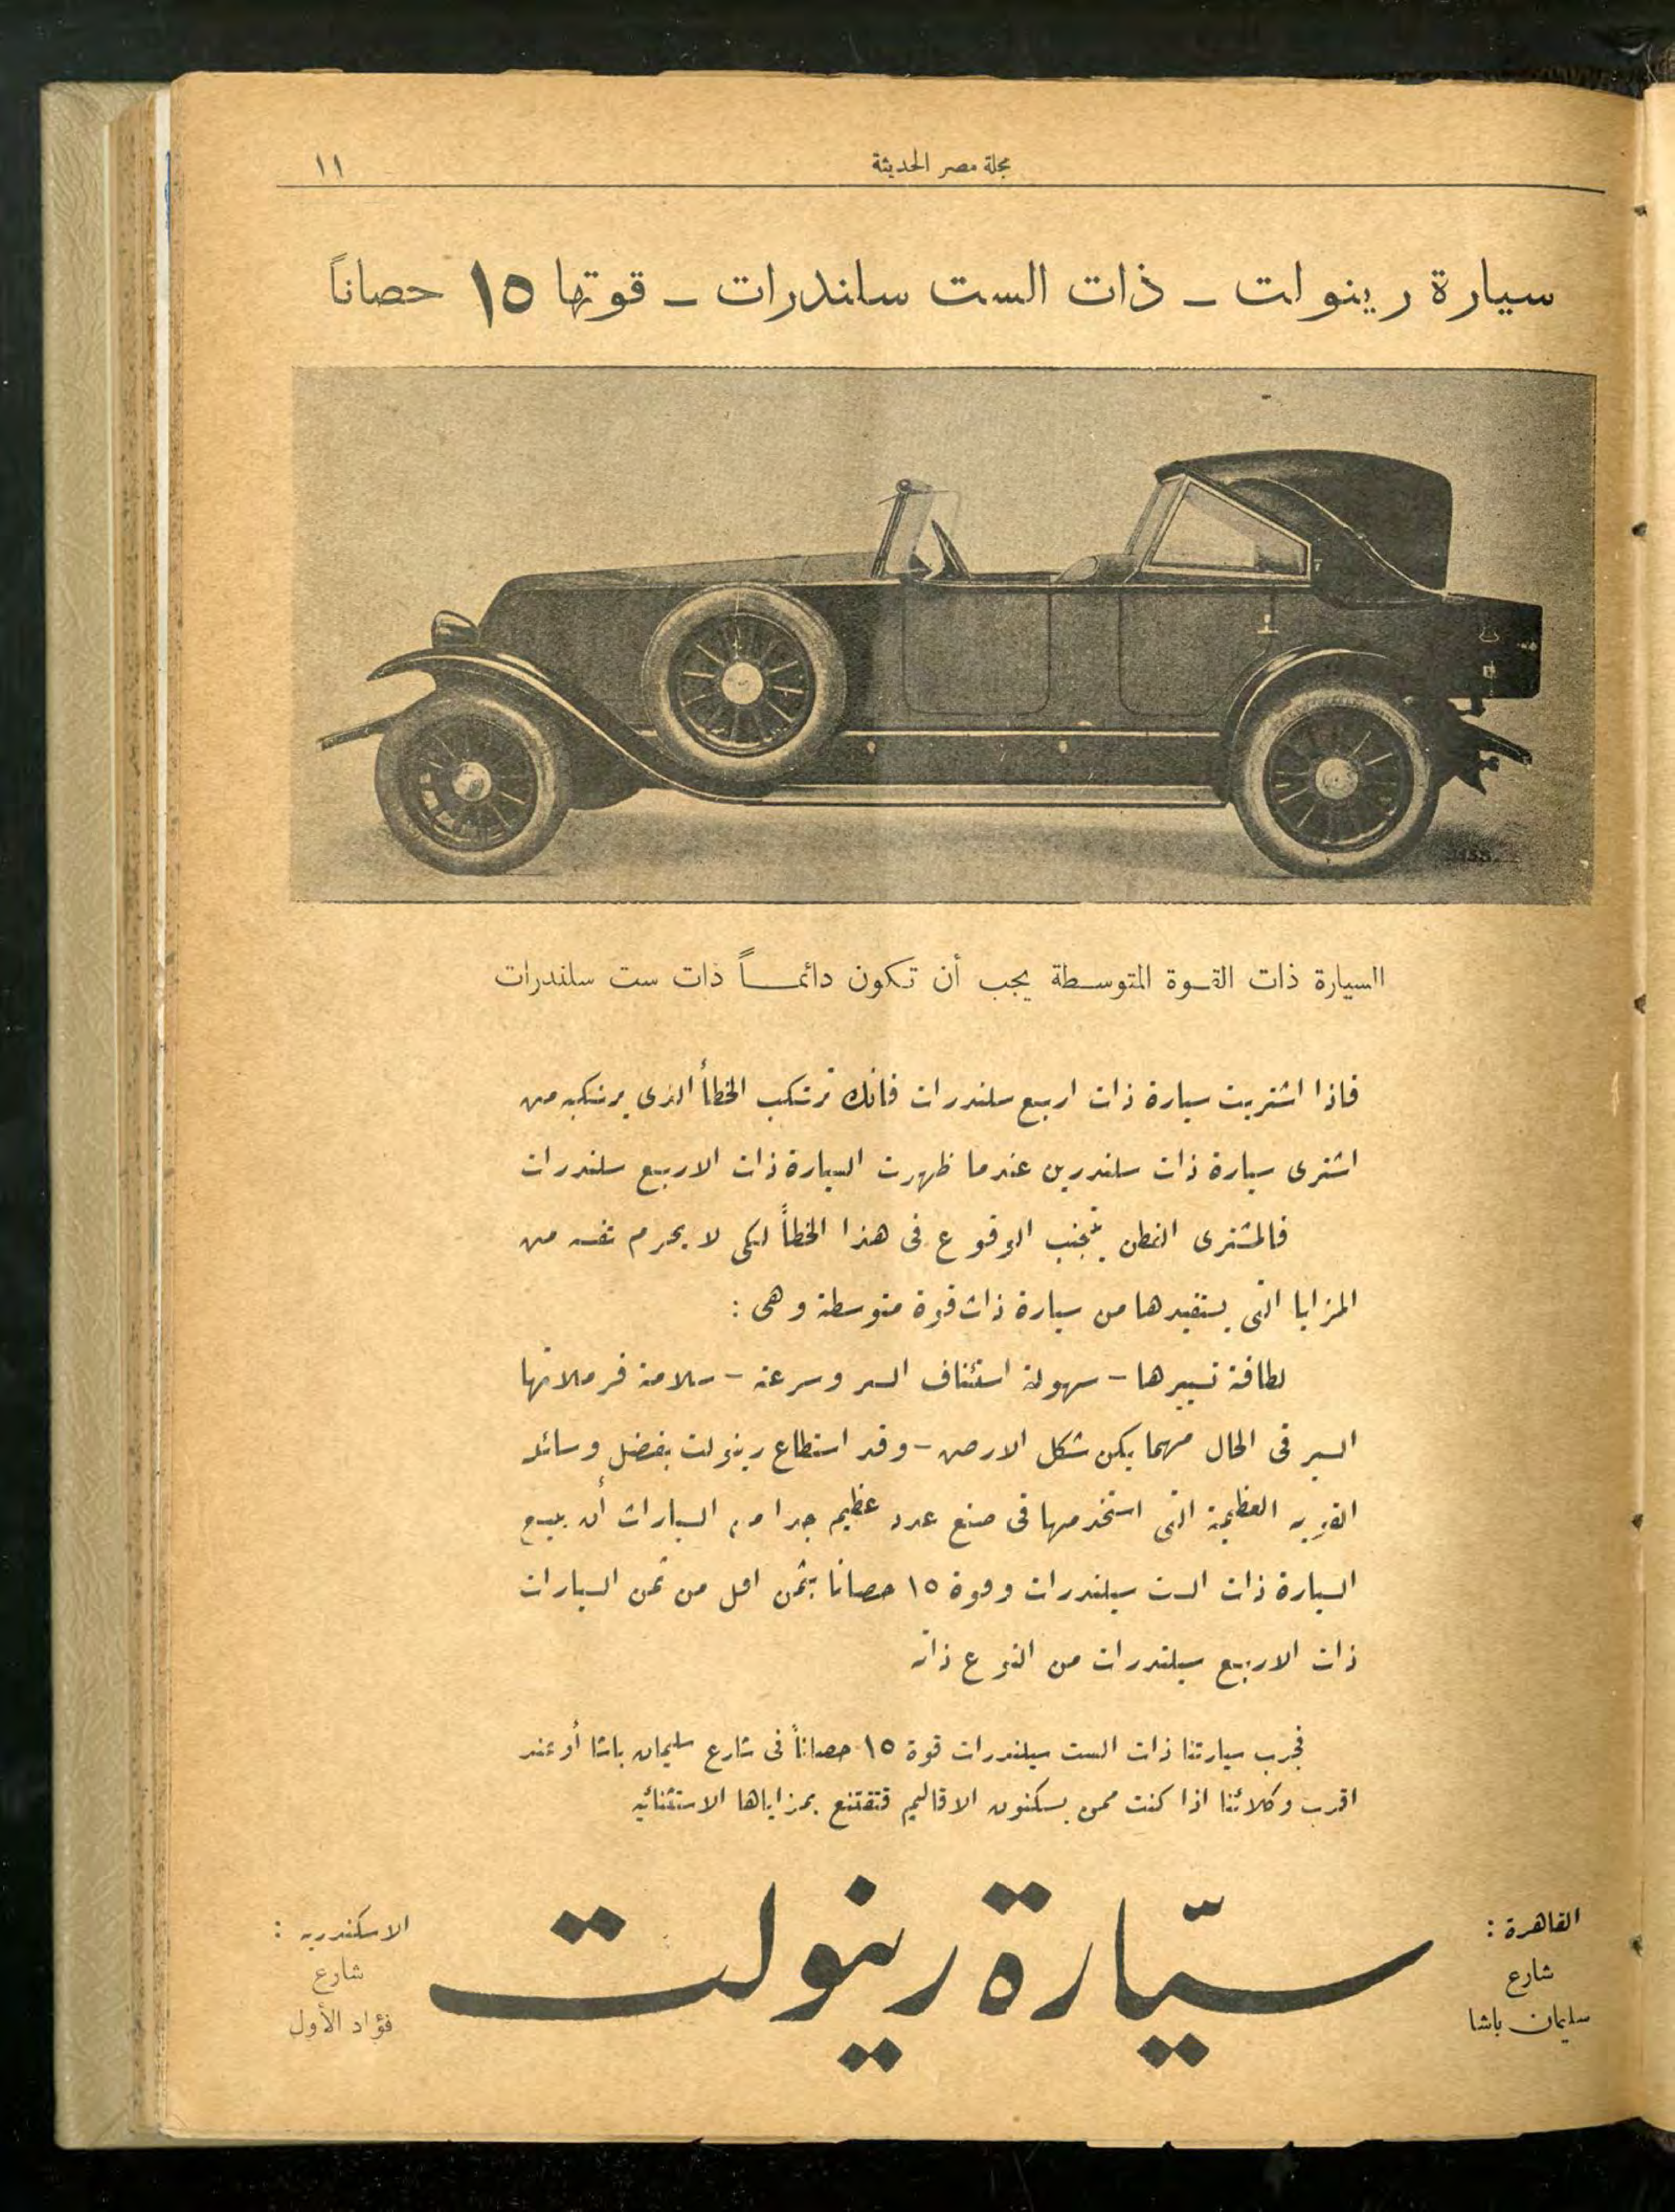 مجلة مصر الحديثة
١١
سيارة رينولت — ذات الست سلندرات — قوتها ١٥ حصاناً
السيارة ذات القوة المتوسطة يجب أن تكون دائماً ذات ست سلندرات
فاذا اشتريت سيارة ذات اربع سلندرات فانك ترتكب الخطأ الذى يرتكبه من
اشترى سيارة ذات سلندرين عندما ظهرت السيارة ذات الاربع سلندرات
فالمشترى الفطن يتجنب الوقوع فى هذا الخطأ لكى لا يحرم نفسه من
المزايا التى يستفيدها من سيارة ذات قوة متوسطة وهى :
لطافة تسييرها — سهولة استئناف السير وسرعته — سلامة فرملاتها
السير فى الحال مهما يكن شكل الارض — وقد استطاع رينولت بفضل وسائله
القوية العظيمة التى استخدمها فى صنع عدد عظيم جدا من السيارات أن يبيع
السيارة ذات الست سيلندرات وقوة ١٥ حصانا بثمن اقل من ثمن السيارات
ذات الاربع سيلندرات من النوع ذاته
فجرب سيارتنا ذات الست سيلندرات قوة ١٥ حصاناً فى شارع سليمان باشا أو عند
اقرب وكلائنا اذا كنت ممن يسكنون الاقاليم فتقتنع بمزاياها الاستثنائية
القاهرة :
شارع
سليمان باشا
سيّارة رينولت
الاسكندرية :
شارع
فؤاد الأول